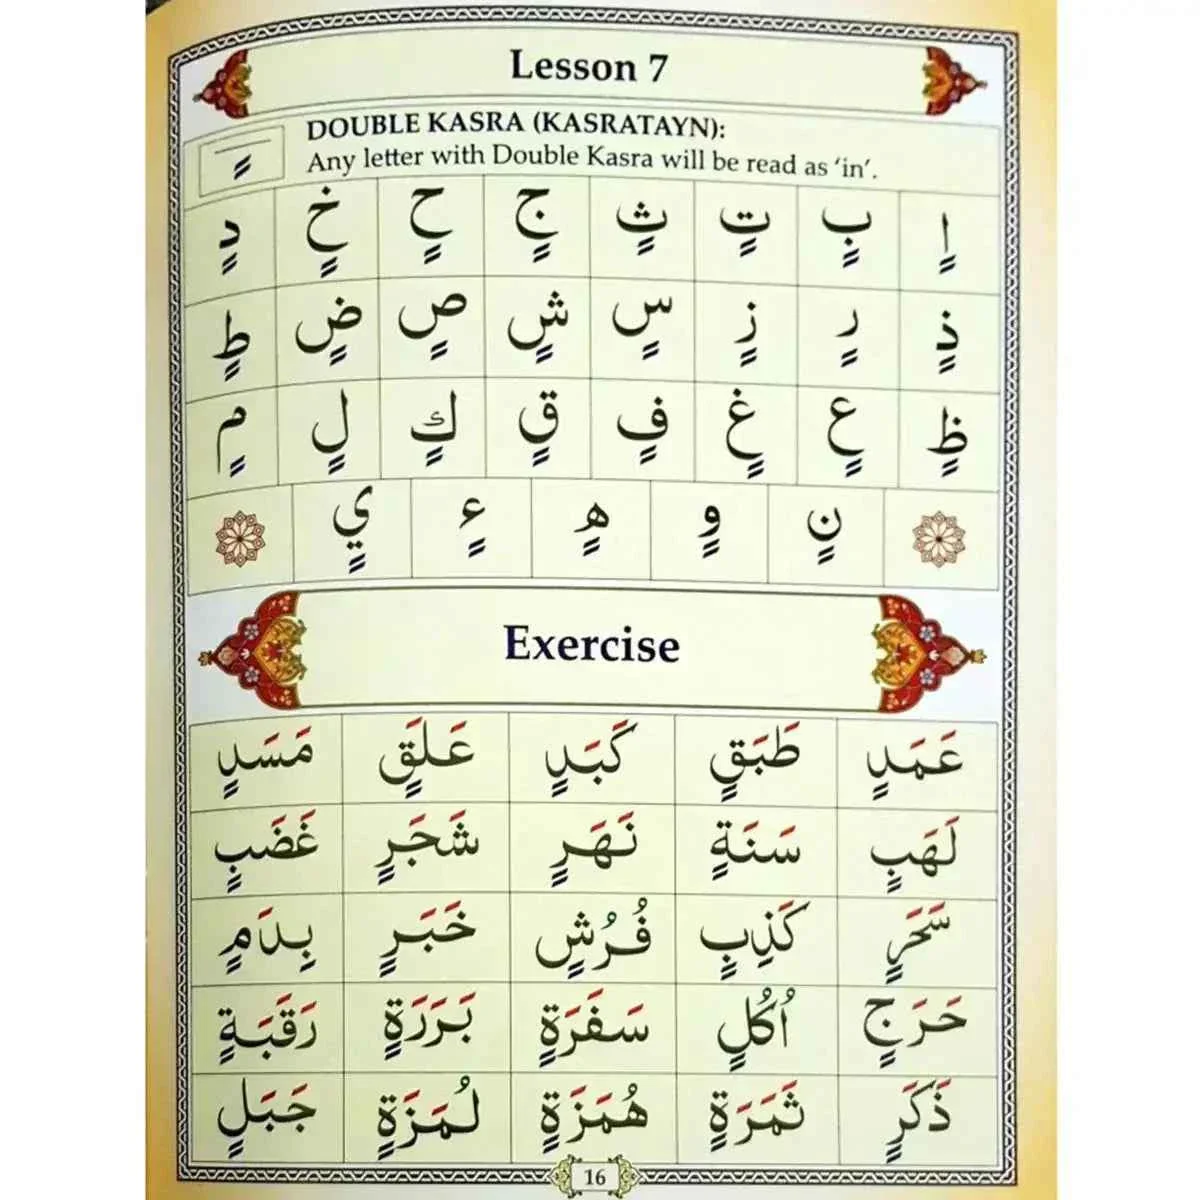 Lesson 7
DOUBLE KASRA (KASRATAYN):
Any letter with Double Kasra will be read as ‘in’.
اٍ بٍ تٍ ثٍ جٍ حٍ خٍ دٍ
ذٍ رٍ زٍ سٍ شٍ صٍ ضٍ طٍ
ظٍ عٍ غٍ فٍ قٍ كٍ لٍ مٍ
نٍ وٍ هٍ ءٍ يٍ
Exercise
عَمَدٍ طَبَقٍ كَبَدٍ عَلَقٍ مَسَدٍ
لَهَبٍ سَنَةٍ نَهَرٍ شَجَرٍ غَضَبٍ
سَحَرٍ كَذِبٍ فُرُشٍ خَبَرٍ بِدَمٍ
حَرَجٍ اُكُلٍ سَفَرَةٍ بَرَرَةٍ رَقَبَةٍ
ذَكَرٍ ثَمَرَةٍ هُمَزَةٍ لُمَزَةٍ جَبَلٍ
16